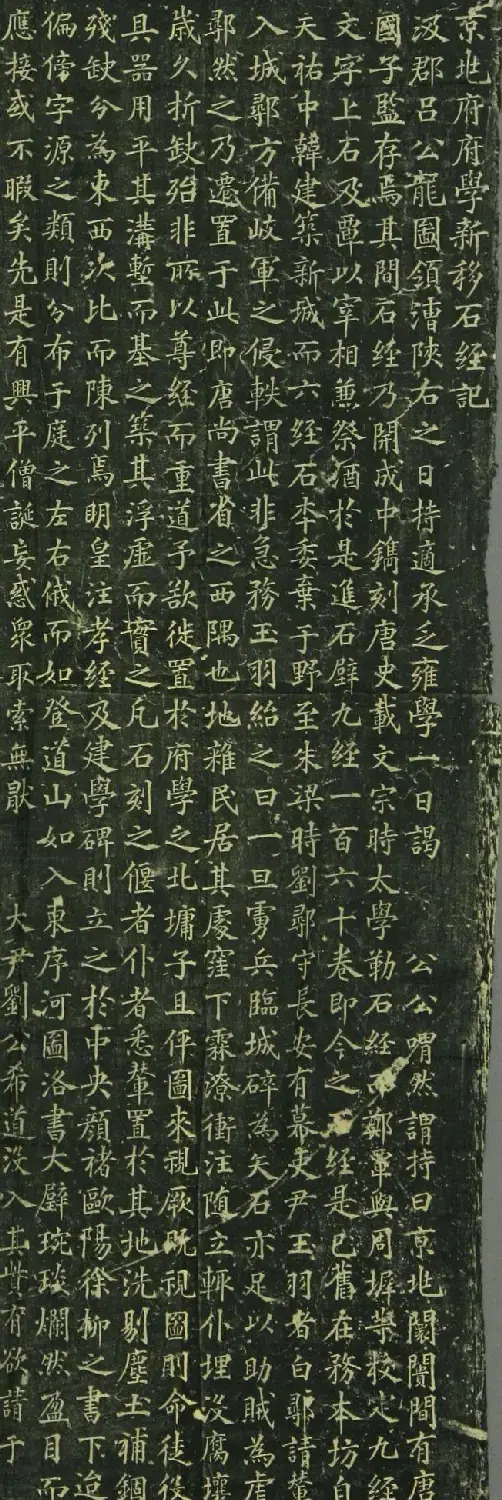 京兆府府學新移石經記
汲郡呂公龍圖領漕陝右之日持適承乏雍學一日謁 公公喟然謂持曰京兆闤闠間有唐
國子監存焉其間石經乃開成中鐫刻唐史載文宗時太學勒石經 鄭覃與周墀等校定九經
文字上石及覃以宰相兼祭酒於是進石壁九經一百六十卷即今之石經是已舊在務本坊自
天祐中韓建築新城而六經石本委棄于野至朱梁時劉鄩守長安有幕吏尹玉羽者白鄩請輦
入城鄩方備岐軍之侵軼謂此非急務玉羽紿之曰一旦虜兵臨城碎為矢石亦足以助賊為虐
鄩然之乃遷置于此即唐尚書省之西隅也地雜民居其處窪下霖潦衝注隨立輒仆埋没腐壤
歲久折缺殆非所以尊經而重道予欲徙置於府學之北墉子且伻圖來視厥既視圖則命徒役
具器用平其溝塹而基之築其浮虛而實之凡石刻之偃者仆者悉輦置於其地洗剔塵土補錮
殘缺分為東西次比而陳列焉明皇注孝經及建學碑則立之於中央顏褚歐陽徐柳之書下迨
偏傍字源之類則分布于庭之左右俄而如登道山如入東序河圖洛書大璧琬琰爛然盈目而
應接或不暇矣先是有興平僧誕妄惑眾取索無厭 大尹劉公希道没入其貲有欲請于